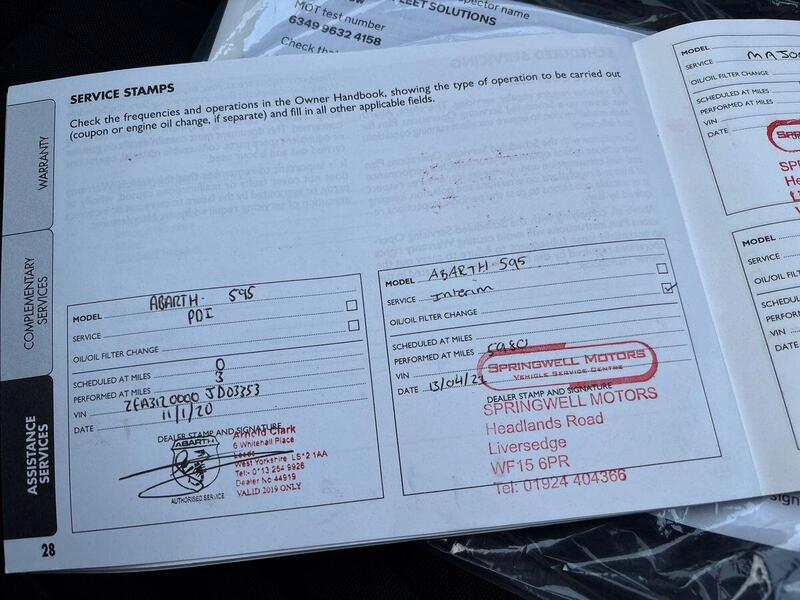 spector name
LEET SOLUTIONS
MOT test number
6349 9632 4158
Check tha
SERVICE STAMPS
Check the frequencies and operations in the Owner Handbook, showing the type of operation to be carried out
(coupon or engine oil change, if separate) and fill in all other applicable fields.
WARRANTY
COMPLEMENTARY
SERVICES
ASSISTANCE
SERVICES
MODEL ABARTH 595
SERVICE PDI
OIL/OIL FILTER CHANGE
SCHEDULED AT MILES 0
PERFORMED AT MILES 3
VIN ZFA3120000 JD03353
DATE 11/1/20
DEALER STAMP AND SIGNATURE
ABARTH
AUTHORISED SERVICE
Arnold Clark
6 Whitehall Place
Leeds
West Yorkshire LS12 1AA
Tel:- 0113 254 9926
Dealer No 44919
VALID 2019 ONLY
MODEL ABARTH 595
SERVICE Interim
OIL/OIL FILTER CHANGE
SCHEDULED AT MILES
PERFORMED AT MILES
VIN
DATE 13/04/22
SPRINGWELL MOTORS
VEHICLE SERVICE CENTRE
DEALER STAMP AND SIGNATURE
SPRINGWELL MOTORS
Headlands Road
Liversedge
WF15 6PR
Tel: 01924 404366
MODEL
SERVICE MAJO
OIL/OIL FILTER CHANGE
SCHEDULED AT MILES
PERFORMED AT MILES
VIN
DATE
SPRI
SPRI
He
MODEL
SERVICE
OIL/OIL FILTER
SCHEDULED
PERFORM
VIN
DATE
28